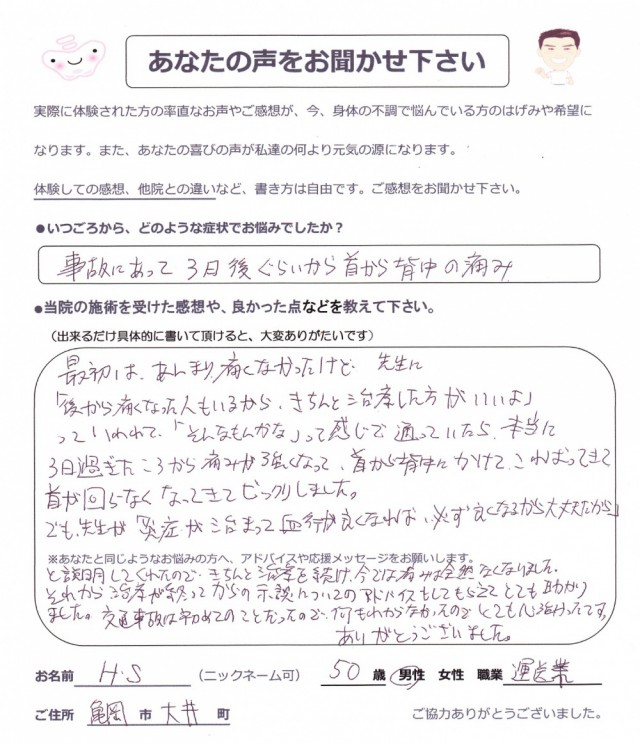 あなたの声をお聞かせ下さい
実際に体験された方の率直なお声やご感想が、今、身体の不調で悩んでいる方のはげみや希望に
なります。また、あなたの喜びの声が私達の何より元気の源になります。
体験しての感想、他院との違いなど、書き方は自由です。ご感想をお聞かせ下さい。
●いつごろから、どのような症状でお悩みでしたか？
事故にあって3日後ぐらいから首から背中の痛み
●当院の施術を受けた感想や、良かった点などを教えて下さい。
（出来るだけ具体的に書いて頂けると、大変ありがたいです）
最初は、あんまり痛くなかったけど 先生に
「後から痛くなった人もいるから、きちんと治療した方がいいよ」
っていわれて、「そんなもんかな」って感じで通っていたら、本当に
3日過ぎたころから痛みが強くなって、首から背中にかけて、こわばってきて
首が回らなくなってきてビックリしました。
でも、先生が「炎症が治まって血行が良くなれば、必ず良くなるから大丈夫だから」
※あなたと同じようなお悩みの方へ、アドバイスや応援メッセージをお願いします。
と説明してくれたので、きちんと治療を続け、今では痛みは全然なくなりました。
それから治療が終ってからの示談についてのアドバイスもしてもらえてとても助かり
ました。交通事故は初めてのことだったので、何もわからなかったのでとても心強かったです。
ありがとうございました。
お名前 H.S （ニックネーム可） 50 歳 男性 女性 職業 運送業
ご住所 亀岡 市 大井 町 ご協力ありがとうございました。